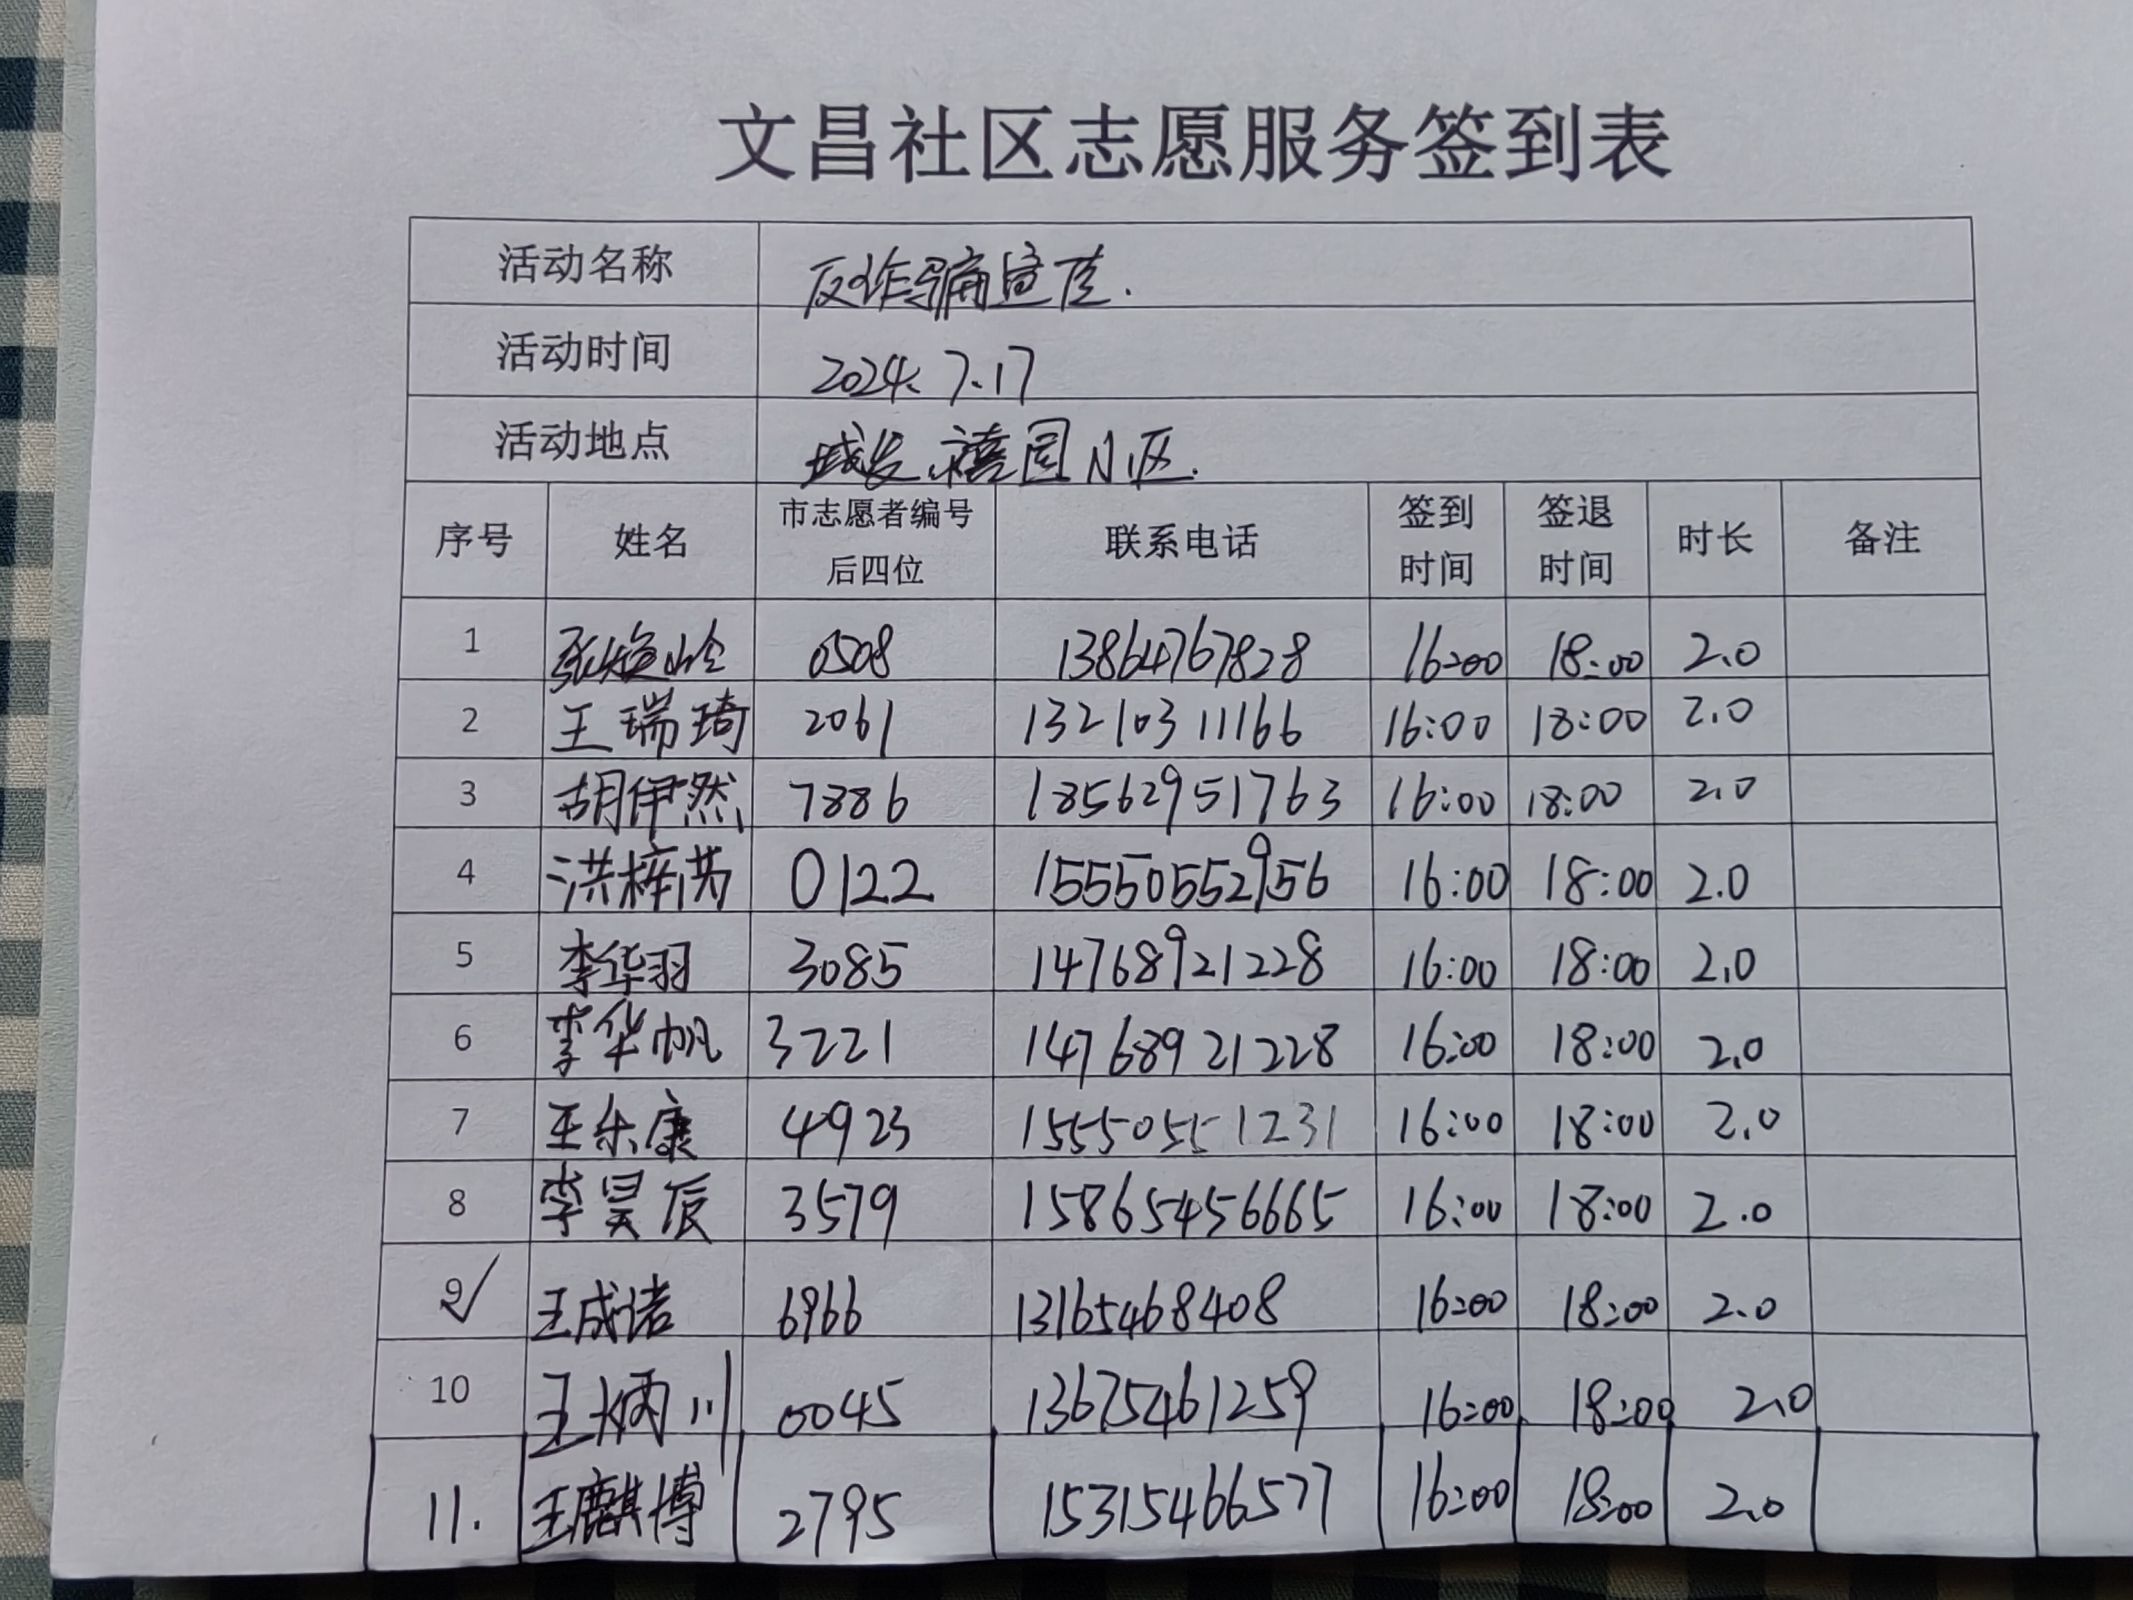 文昌社区志愿服务签到表
活动名称 反诈骗宣传.
活动时间 2024.7.17
活动地点 城发禧园小区.
序号 姓名 市志愿者编号后四位 联系电话 签到时间 签退时间 时长 备注
1 0508 13864767828 16:00 18:00 2.0
2 王瑞琦 2061 13210311166 16:00 18:00 2.0
3 胡伊然 7886 18562951763 16:00 18:00 2.0
4 洪梓 0122 15550552956 16:00 18:00 2.0
5 李华羽 3085 14768921228 16:00 18:00 2.0
6 李华帆 3221 14768921228 16:00 18:00 2.0
7 王乐康 4923 15550551231 16:00 18:00 2.0
8 李昊辰 3579 15865456665 16:00 18:00 2.0
9 王成诺 6966 13165468408 16:00 18:00 2.0
10 王炳川 0045 13675461259 16:00 18:00 2.0
11. 王麒博 2795 15315466577 16:00 18:00 2.0